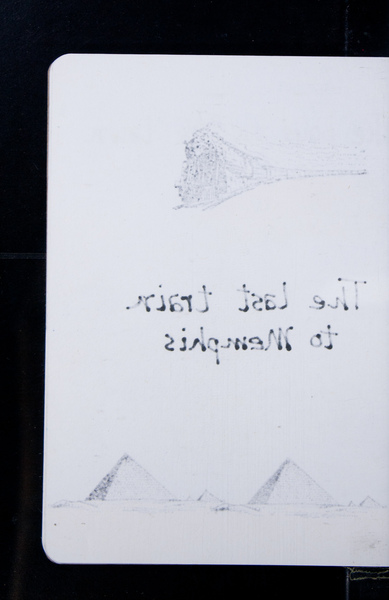 The last train
to Memphis